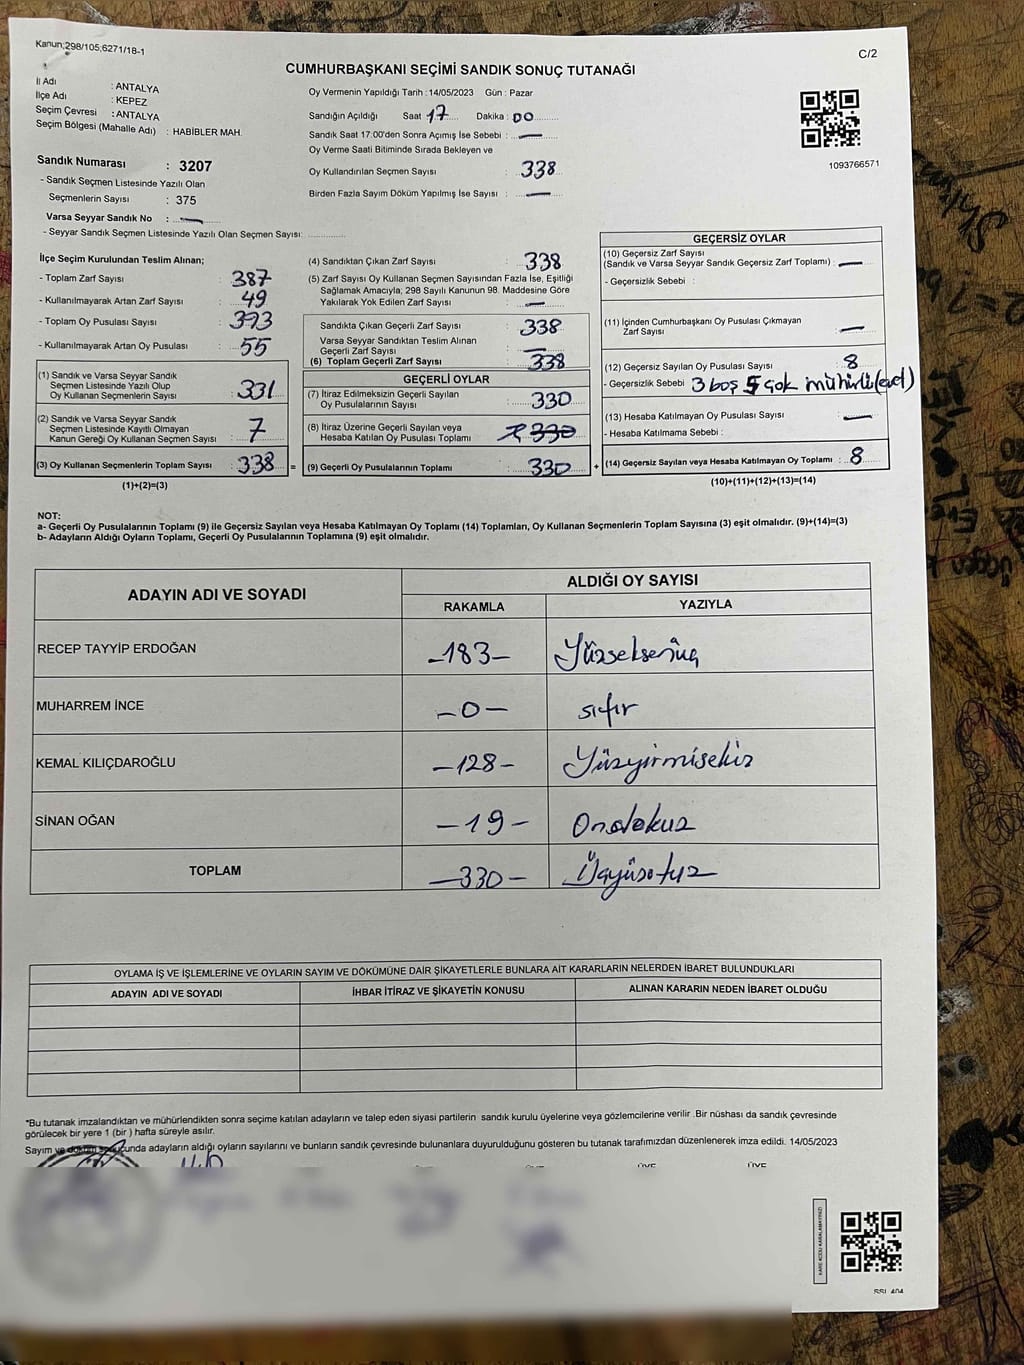 Kanun;298/105;6271/18-1
C/2
CUMHURBAŞKANI SEÇİMİ SANDIK SONUÇ TUTANAĞI
İl Adı : ANTALYA
İlçe Adı : KEPEZ
Seçim Çevresi : ANTALYA
Seçim Bölgesi (Mahalle Adı) : HABİBLER MAH.
Oy Vermenin Yapıldığı Tarih : 14/05/2023 Gün : Pazar
Sandığın Açıldığı Saat 17 Dakika : 00
Sandık Saat 17:00'den Sonra Açımış İse Sebebi : —
Oy Verme Saati Bitiminde Sırada Bekleyen ve
Oy Kullandırılan Seçmen Sayısı : 338
Birden Fazla Sayım Döküm Yapılmış İse Sayısı : —
1093766571
Sandık Numarası : 3207
- Sandık Seçmen Listesinde Yazılı Olan
Seçmenlerin Sayısı : 375
Varsa Seyyar Sandık No : —
- Seyyar Sandık Seçmen Listesinde Yazılı Olan Seçmen Sayısı:
İlçe Seçim Kurulundan Teslim Alınan;
- Toplam Zarf Sayısı : 387
- Kullanılmayarak Artan Zarf Sayısı : 49
- Toplam Oy Pusulası Sayısı : 393
- Kullanılmayarak Artan Oy Pusulası : 55
(1) Sandık ve Varsa Seyyar Sandık
Seçmen Listesinde Yazılı Olup
Oy Kullanan Seçmenlerin Sayısı : 331
(2) Sandık ve Varsa Seyyar Sandık
Seçmen Listesinde Kayıtlı Olmayan
Kanun Gereği Oy Kullanan Seçmen Sayısı : 7
(3) Oy Kullanan Seçmenlerin Toplam Sayısı : 338 =
(1)+(2)=(3)
(4) Sandıktan Çıkan Zarf Sayısı : 338
(5) Zarf Sayısı Oy Kullanan Seçmen Sayısından Fazla İse, Eşitliği
Sağlamak Amacıyla, 298 Sayılı Kanunun 98. Maddesine Göre
Yakılarak Yok Edilen Zarf Sayısı : —
Sandıkta Çıkan Geçerli Zarf Sayısı : 338
Varsa Seyyar Sandıktan Teslim Alınan
Geçerli Zarf Sayısı : —
(6) Toplam Geçerli Zarf Sayısı : 338
GEÇERLİ OYLAR
(7) İtiraz Edilmeksizin Geçerli Sayılan
Oy Pusulalarının Sayısı : 330
(8) İtiraz Üzerine Geçerli Sayılan veya
Hesaba Katılan Oy Pusulası Toplamı : 330
(9) Geçerli Oy Pusulalarının Toplamı : 330 +
GEÇERSİZ OYLAR
(10) Geçersiz Zarf Sayısı
(Sandık ve Varsa Seyyar Sandık Geçersiz Zarf Toplamı) : —
- Geçersizlik Sebebi :
(11) İçinden Cumhurbaşkanı Oy Pusulası Çıkmayan
Zarf Sayısı : —
(12) Geçersiz Sayılan Oy Pusulası Sayısı : 8
- Geçersizlik Sebebi : 3 boş 5 çok mühürlü
(13) Hesaba Katılmayan Oy Pusulası Sayısı : —
- Hesaba Katılmama Sebebi :
(14) Geçersiz Sayılan veya Hesaba Katılmayan Oy Toplamı : 8
(10)+(11)+(12)+(13)=(14)
NOT:
a- Geçerli Oy Pusulalarının Toplamı (9) ile Geçersiz Sayılan veya Hesaba Katılmayan Oy Toplamı (14) Toplamları, Oy Kullanan Seçmenlerin Toplam Sayısına (3) eşit olmalıdır. (9)+(14)=(3)
b- Adayların Aldığı Oyların Toplamı, Geçerli Oy Pusulalarının Toplamına (9) eşit olmalıdır.
ADAYIN ADI VE SOYADI ALDIĞI OY SAYISI
RAKAMLA YAZIYLA
RECEP TAYYİP ERDOĞAN -183- Yüzseksenüç
MUHARREM İNCE -0- sıfır
KEMAL KILIÇDAROĞLU -128- Yüzyirmisekiz
SİNAN OĞAN -19- Ondokuz
TOPLAM -330- Üçyüzotuz
OYLAMA İŞ VE İŞLEMLERİNE VE OYLARIN SAYIM VE DÖKÜMÜNE DAİR ŞİKAYETLERLE BUNLARA AİT KARARLARIN NELERDEN İBARET BULUNDUKLARI
ADAYIN ADI VE SOYADI İHBAR İTİRAZ VE ŞİKAYETİN KONUSU ALINAN KARARIN NEDEN İBARET OLDUĞU
*Bu tutanak imzalandıktan ve mühürlendikten sonra seçime katılan adayların ve talep eden siyasi partilerin sandık kurulu üyelerine veya gözlemcilerine verilir .Bir nüshası da sandık çevresinde
görülecek bir yere 1 (bir ) hafta süreyle asılır.
Sayım ve döküm sonucunda adayların aldığı oyların sayılarını ve bunların sandık çevresinde bulunanlara duyurulduğunu gösteren bu tutanak tarafımızdan düzenlenerek imza edildi. 14/05/2023
ÜYE ÜYE
KARE KODU KARALAMAYINIZ!